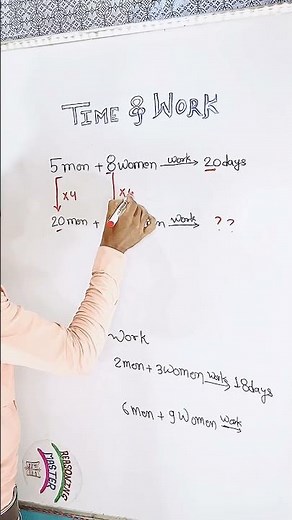 TIME & WORK
5 men + 8 women work→ 20 days
×4 ×4
20 men + work→ ??
Work
2 men + 3 women work→ 18 days
6 men + 9 women work→
REASONING
MASTER